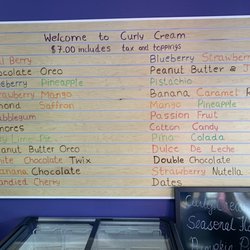 Welcome to Curly Cream
$7.00 includes tax and toppings
Berry
Chocolate Oreo
Blueberry Pineapple
Strawberry Mango
Almond Saffron
Bubblegum
Smores
Key Lime Pie
Peanut Butter Oreo
White Chocolate Twix
Banana Chocolate
Candied Cherry
Blueberry Strawberry
Peanut Butter &
Pistachio
Banana Caramel
Mango Pineapple
Passion Fruit
Cotton Candy
Pina Colada
Dulce De Leche
Double Chocolate
Strawberry Nutella
Dates
Seasonal
Pumpkin